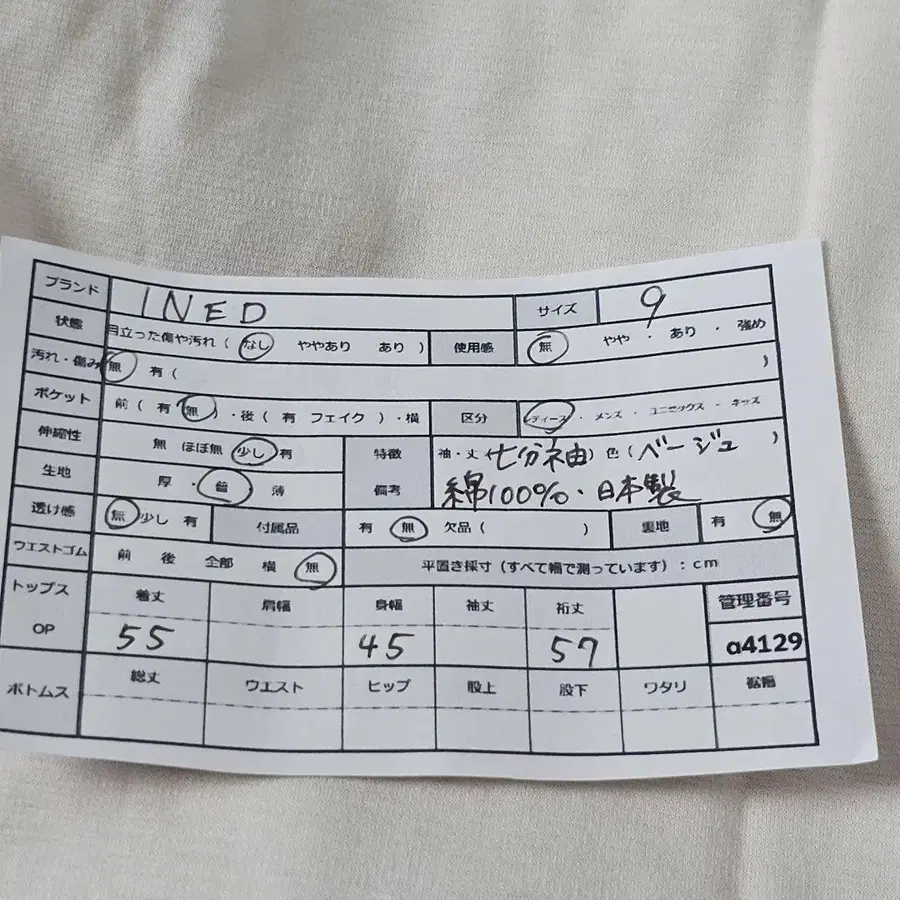 ブランド INED サイズ 9
状態 目立った傷や汚れ ( なし ややあり あり ) 使用感 無 やや ・ あり ・ 強め
汚れ・傷み 無 有 ( )
ポケット 前 ( 有 無 ) ・後 ( 有 フェイク ) ・横 区分 レディース ・ メンズ ・ ユニセックス ・ キッズ
伸縮性 無 ほぼ無 少し 有 特徴 袖・丈 (七分袖) 色 (ベージュ )
生地 厚 ・ 普 薄 備考 綿100%・日本製
透け感 無 少し 有 付属品 有 無 欠品 ( ) 裏地 有 無
ウエストゴム 前 後 全部 横 無 平置き採寸 (すべて幅で測っています) : cm
トップス 着丈 肩幅 身幅 袖丈 裄丈 管理番号
OP 55 45 57 a4129
ボトムス 総丈 ウエスト ヒップ 股上 股下 ワタリ 裾幅